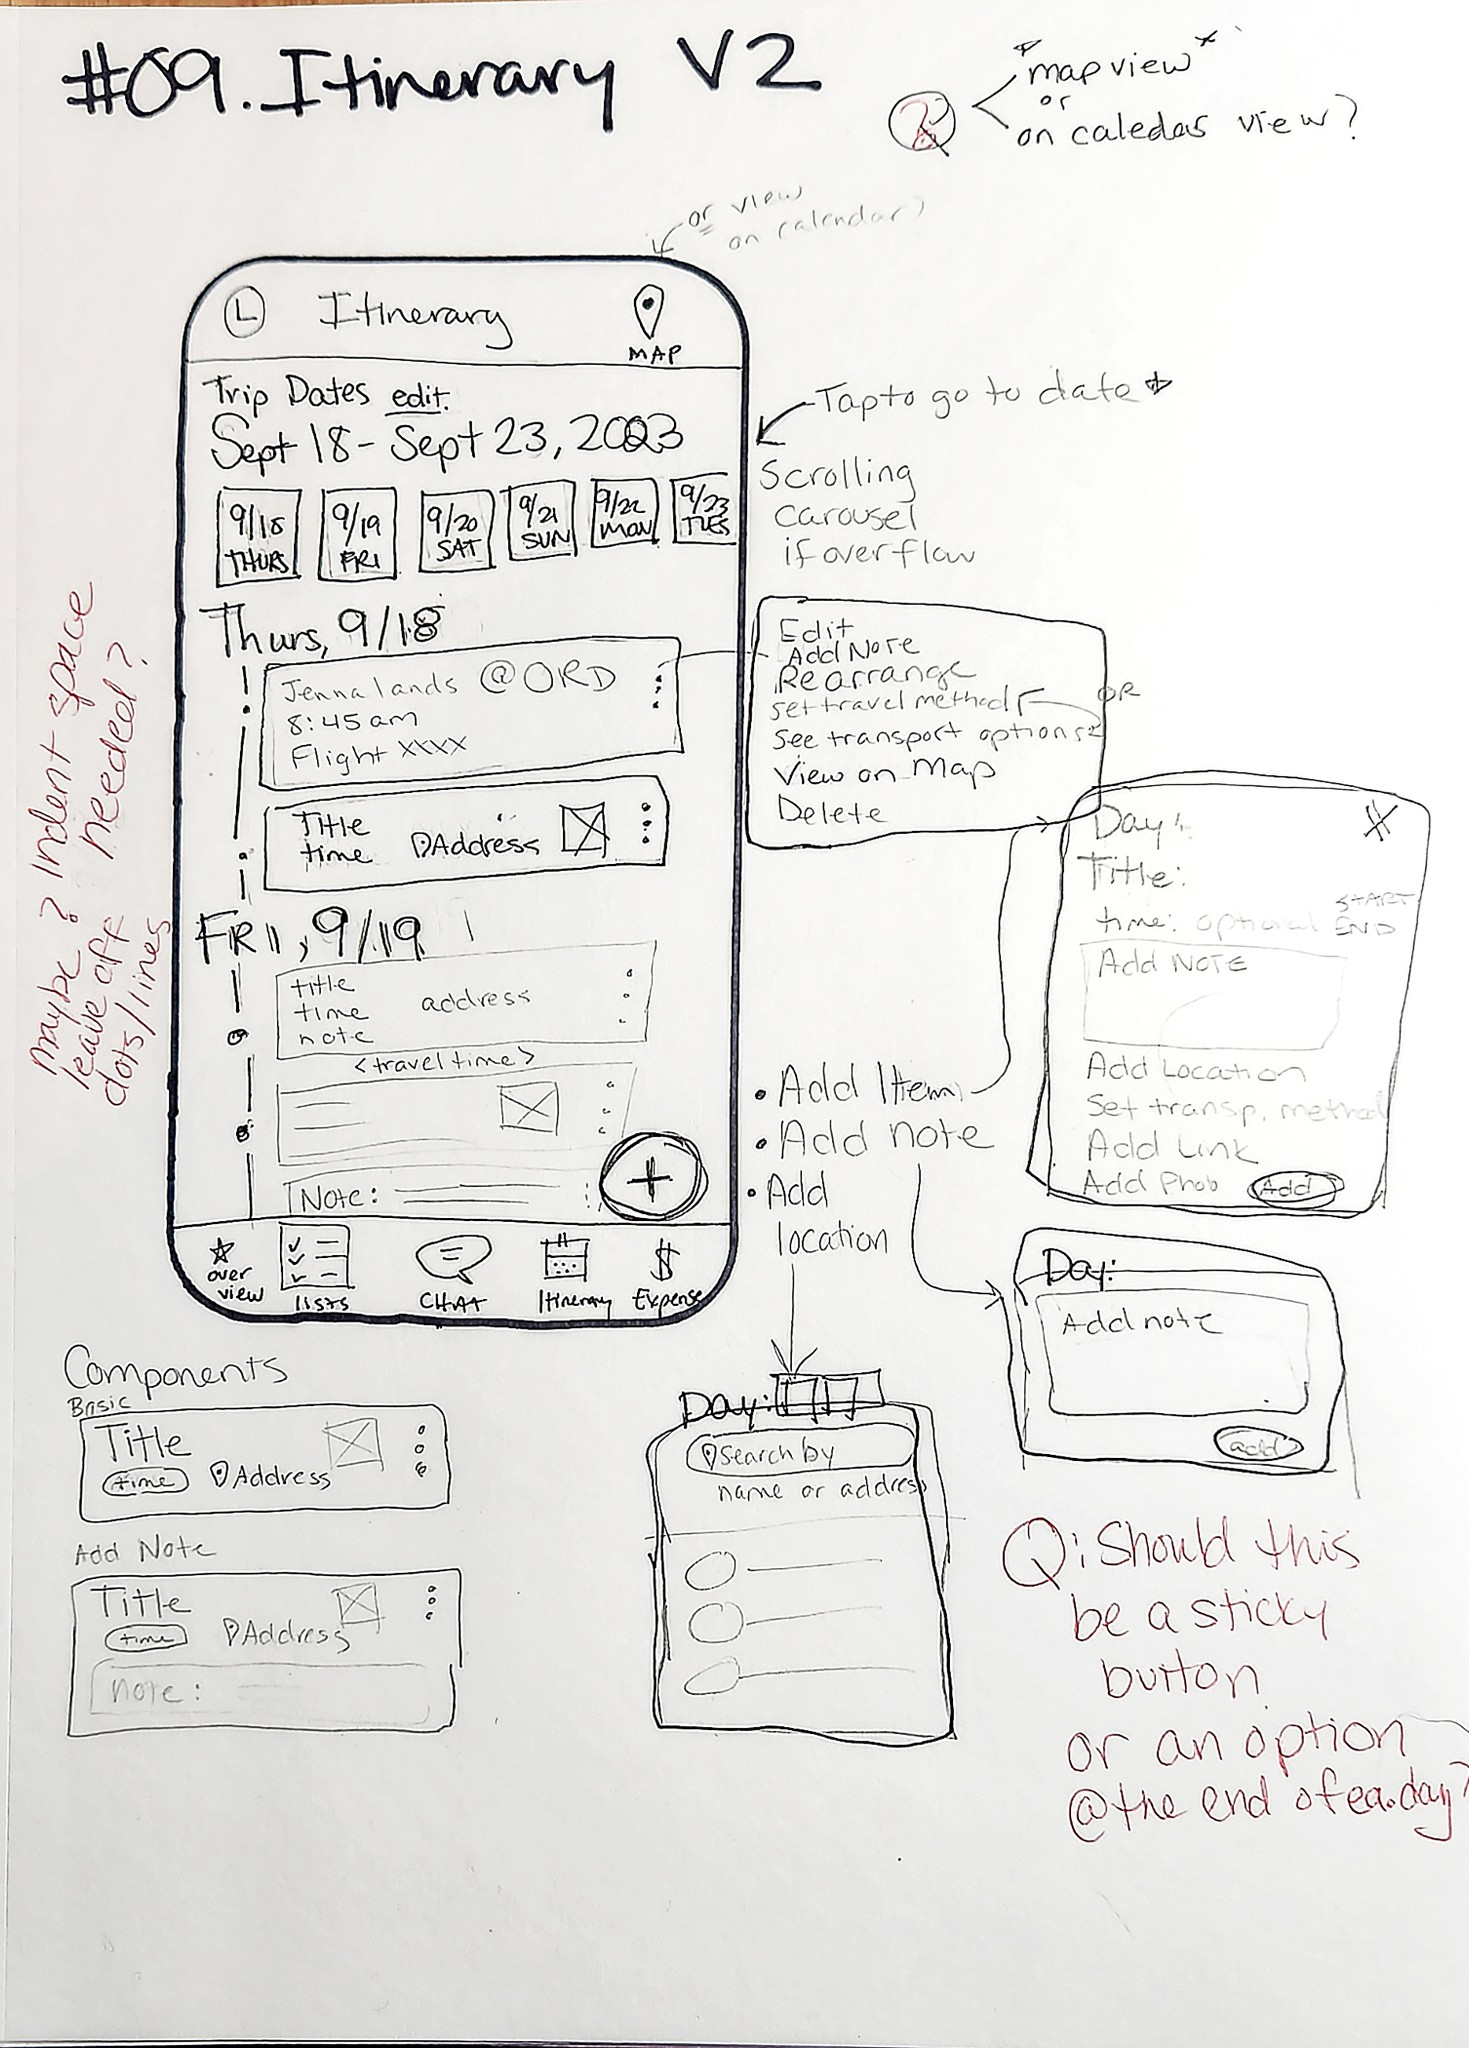 #09. Itinerary V2
*map view*
or
on caledas view?
or view
on calendar?
L
Itinerary
MAP
Trip Dates edit.
Sept 18 - Sept 23, 2023
9/18
THURS
9/19
FRI
9/20
SAT
9/21
SUN
9/22
MON
9/23
TUES
Tap to go to date
Scrolling
carousel
if overflow
Thurs, 9/18
Jenna lands @ORD
8:45am
Flight XXXX
Title
time
Address
FRI, 9/19
title
time
note
address
<travel time>
Note:
+
over
view
lists
CHAT
Itinerary
$
Expense
maybe? Indent space
leave off needed?
dots/lines
Edit
Add Note
Rearrange
set travel method
OR
See transport options
View on Map
Delete
Day:
Title:
time: optional
START
END
Add NOTE
Add Location
Set transp. method
Add Link
Add Photo
Add
• Add Item
• Add note
• Add
location
Day:
Add note
add
Day:
Search by
name or address
Components
Basic
Title
time
Address
Add Note
Title
time
Address
note:
Q: Should this
be a sticky
button
or an option
@the end of ea. day?